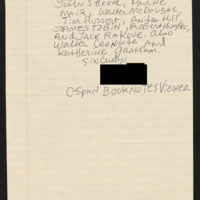 John S. Reed, Pauline
Maier, Walter McDougal,
Tim Russert, Anita Hill,
JAMES TOBIN, Robert
AND JACK RAKOVE. Also
Walter Cronkite and
Katherine Graham.
Sincerely,
CSPAN BOOKNOTES VIEWER